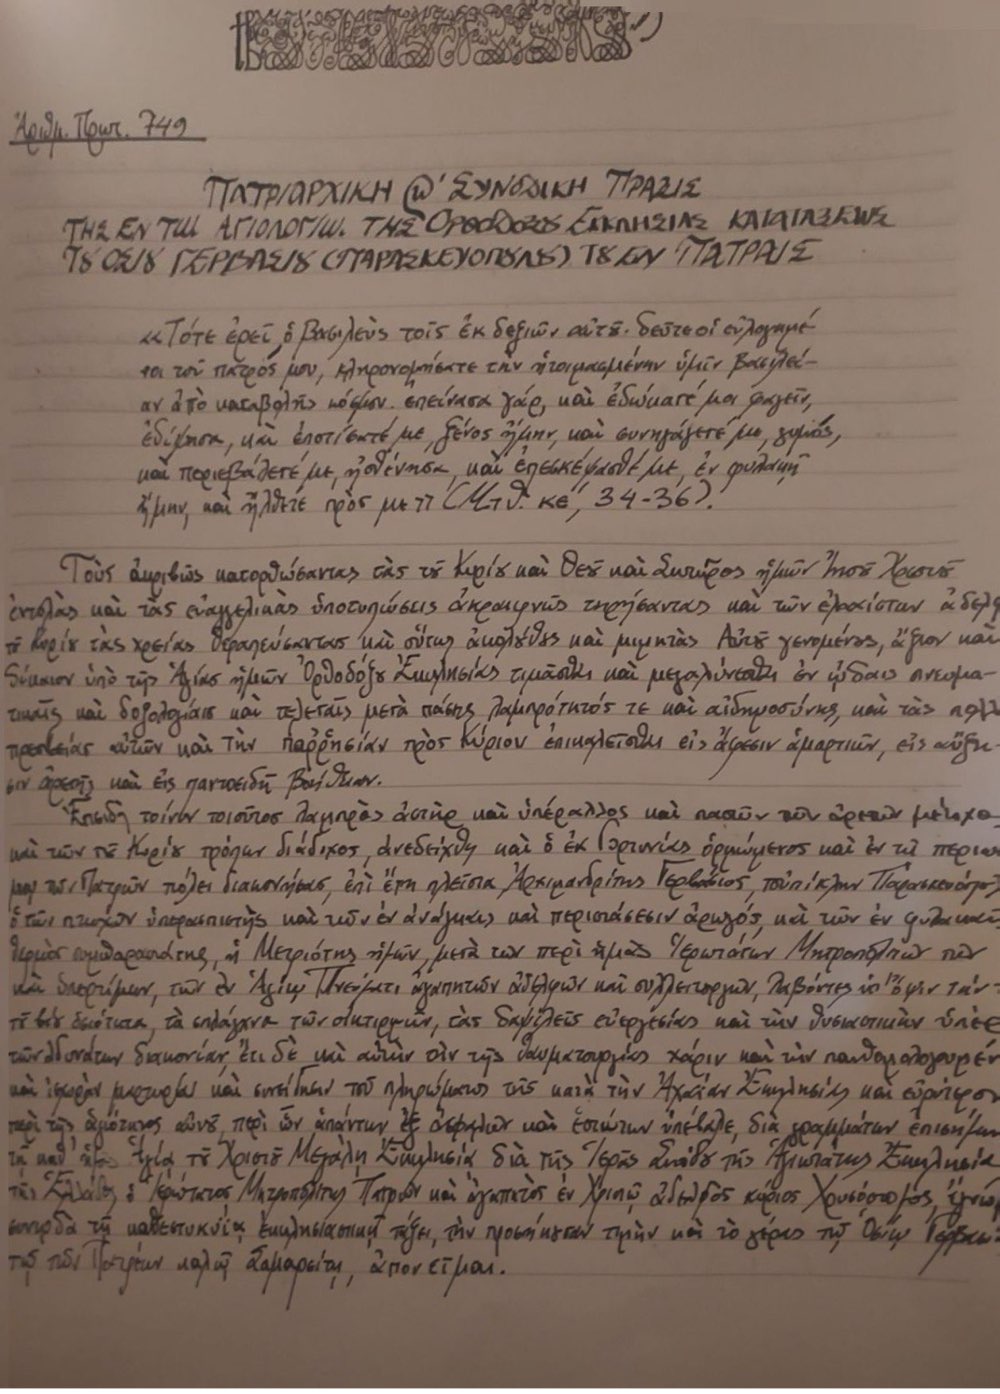 Ἀριθμ. Πρωτ. 749
ΠΑΤΡΙΑΡΧΙΚΗ ΣΥΝΟΔΙΚΗ ΠΡΑΞΙΣ
ΤΗΣ ΕΝ ΤΩ ΑΓΙΟΛΟΓΙΩ ΤΗΣ ΟΡΘΟΔΟΞΟΥ ΕΚΚΛΗΣΙΑΣ ΚΑΤΑΤΑΞΕΩΣ
ΤΟΥ ΟΣΙΟΥ ΓΕΡΒΑΣΙΟΥ (ΠΑΡΑΣΚΕΥΟΠΟΥΛΟΥ) ΤΟΥ ΕΝ ΠΑΤΡΑΙΣ
«Τότε ἐρεῖ ὁ βασιλεὺς τοῖς ἐκ δεξιῶν αὐτοῦ· δεῦτε οἱ εὐλογημέ-
νοι τοῦ πατρός μου, κληρονομήσατε τὴν ἡτοιμασμένην ὑμῖν βασιλεί-
αν ἀπὸ καταβολῆς κόσμου. ἐπείνασα γάρ, καὶ ἐδώκατέ μοι φαγεῖν,
ἐδίψησα, καὶ ἐποτίσατέ με, ξένος ἤμην, καὶ συνηγάγετέ με, γυμνός,
καὶ περιεβάλετέ με, ἠσθένησα, καὶ ἐπεσκέψασθέ με, ἐν φυλακῇ
ἤμην, καὶ ἤλθετε πρός με» (Μτθ. κε΄, 34-36).
Τοὺς ἀκριβῶς κατορθώσαντας τὰς τοῦ Κυρίου καὶ Θεοῦ καὶ Σωτῆρος ἡμῶν Ἰησοῦ Χριστοῦ
ἐντολὰς καὶ τὰς εὐαγγελικὰς ὑποτυπώσεις ἀκραιφνῶς τηρήσαντας καὶ τῶν ἐλαχίστων ἀδελφ
τοῦ Κυρίου τὰς χρείας θεραπεύσαντας καὶ οὕτως ἀκολούθους καὶ μιμητὰς Αὐτοῦ γενομένους, ἄξιον καὶ
δίκαιον ὑπὸ τῆς Ἁγίας ἡμῶν Ὀρθοδόξου Ἐκκλησίας τιμᾶσθαι καὶ μεγαλύνεσθαι ἐν ᾠδαῖς πνευμα-
τικαῖς καὶ δοξολογίαις καὶ τελεταῖς μετὰ πάσης λαμπρότητός τε καὶ αἰδημοσύνης, καὶ τὰς πολλ
πρεσβείας αὐτῶν καὶ τὴν παρρησίαν πρὸς Κύριον ἐπικαλεῖσθαι εἰς ἄφεσιν ἁμαρτιῶν, εἰς αὔξη-
σιν ἀρετῆς καὶ εἰς παντοειδῆ βοήθειαν.
Ἐπειδὴ τοίνυν τοιοῦτος λαμπρὸς ἀστὴρ καὶ ὑπέραλλος καὶ πασῶν τῶν ἀρετῶν μέτοχο
καὶ τῶν τοῦ Κυρίου τρόπων διάδοχος, ἀνεδείχθη καὶ ὁ ἐκ Γορτυνίας ὁρμώμενος καὶ ἐν τῇ περιω
μῳ τῶν Πατρῶν πόλει διακονήσας, ἐπὶ ἔτη πλεῖστα, Ἀρχιμανδρίτης Γερβάσιος, τοὐπίκλην Παρασκευόπουλ
ὁ τῶν πτωχῶν ὑπερασπιστὴς καὶ τῶν ἐν ἀνάγκαις καὶ περιστάσεσιν ἀρωγός, καὶ τῶν ἐν φυλακαῖς
θερμὸς συμπαραστάτης, ἡ Μετριότης ἡμῶν, μετὰ τῶν περὶ ἡμᾶς Ἱερωτάτων Μητροπολιτῶν
καὶ ὑπερτίμων, τῶν ἐν Ἁγίῳ Πνεύματι ἀγαπητῶν ἀδελφῶν καὶ συλλειτουργῶν, λαβόντες ὑπ᾽ ὄψιν τὴν
τοῦ βίου ὁσιότητα, τὰ σπλάγχνα τῶν οἰκτιρμῶν, τὰς δαψιλεῖς εὐεργεσίας καὶ τὴν θυσιαστικὴν ὑπὲρ
τῶν ἀδυνάτων διακονίαν, ἔτι δὲ καὶ αὐτὴν τὴν τῆς θαυματουργίας χάριν καὶ τὴν πανθομολογουμέν
καὶ μαρτυρίαν καὶ συνείδησιν τοῦ πληρώματος τῆς κατὰ τὴν Ἀχαΐαν Ἐκκλησίας καὶ εὐρύτερον
περὶ τῆς ἁγιότητος αὐτοῦ, περὶ ὧν ἁπάντων ἐξ ἀσφαλῶν καὶ ἑστώτων ὑπέβαλε, διὰ γραμμάτων ἐπισήμων
τῇ καθ᾽ ἡμᾶς Ἁγίᾳ τοῦ Χριστοῦ Μεγάλῃ Ἐκκλησίᾳ διὰ τῆς Ἱερᾶς Συνόδου τῆς Ἁγιωτάτης Ἐκκλησία
τῆς Ἑλλάδος ὁ Ἱερώτατος Μητροπολίτης Πατρῶν καὶ ἀγαπητὸς ἐν Χριστῷ ἀδελφὸς κύριος Χρυσόστομος, ἔγνω
συνῳδὰ τῇ καθεστηκυίᾳ ἐκκλησιαστικῇ τάξει, τὴν προσήκουσαν τιμὴν καὶ τὸ γέρας τῷ Ὁσίῳ Γερβασί
τῷ τῶν Πατρέων καλῷ Σαμαρείτῃ, ἀπονεῖμαι.